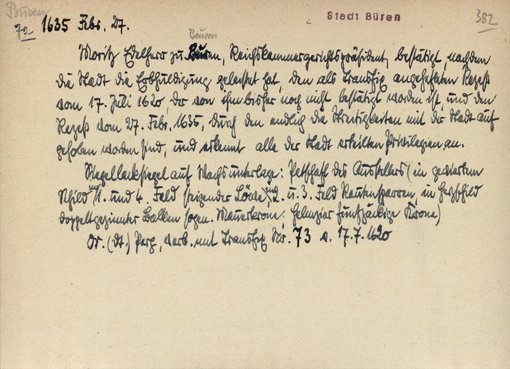 Büren
72
1635 Febr. 27.
Stadt Büren
382
Büren
Moritz Edelherr zu Büren, Reichskammergerichtspräsident, bestätigt, nachdem
die Stadt die Erbhuldigung geleistet hat, den als Transfix angehefteten Rezeß
vom 17. Juli 1620 der von ihm bisher noch nicht bestätigt worden ist, und den
Rezeß vom 27. Febr. 1635, durch den endlich die Streitigkeiten mit der Stadt auf
gehoben worden sind, und erkennt alle der Stadt erteilten Privilegien an.
Siegellacksiegel auf Wachsunterlage: Petschaft des Ausstellers (in geviertem
Schild 1. und 4. Feld steigender Löwe, 2. u. 3. Feld Rautensparren, in Herzschild
doppeltgezinnter Balken sogen. Mauerkrone; Helmzier fünfzackige Krone)
Or. (Dt.) Perg., verb. mit Transfix Nr. 73 v. 17.7.1620